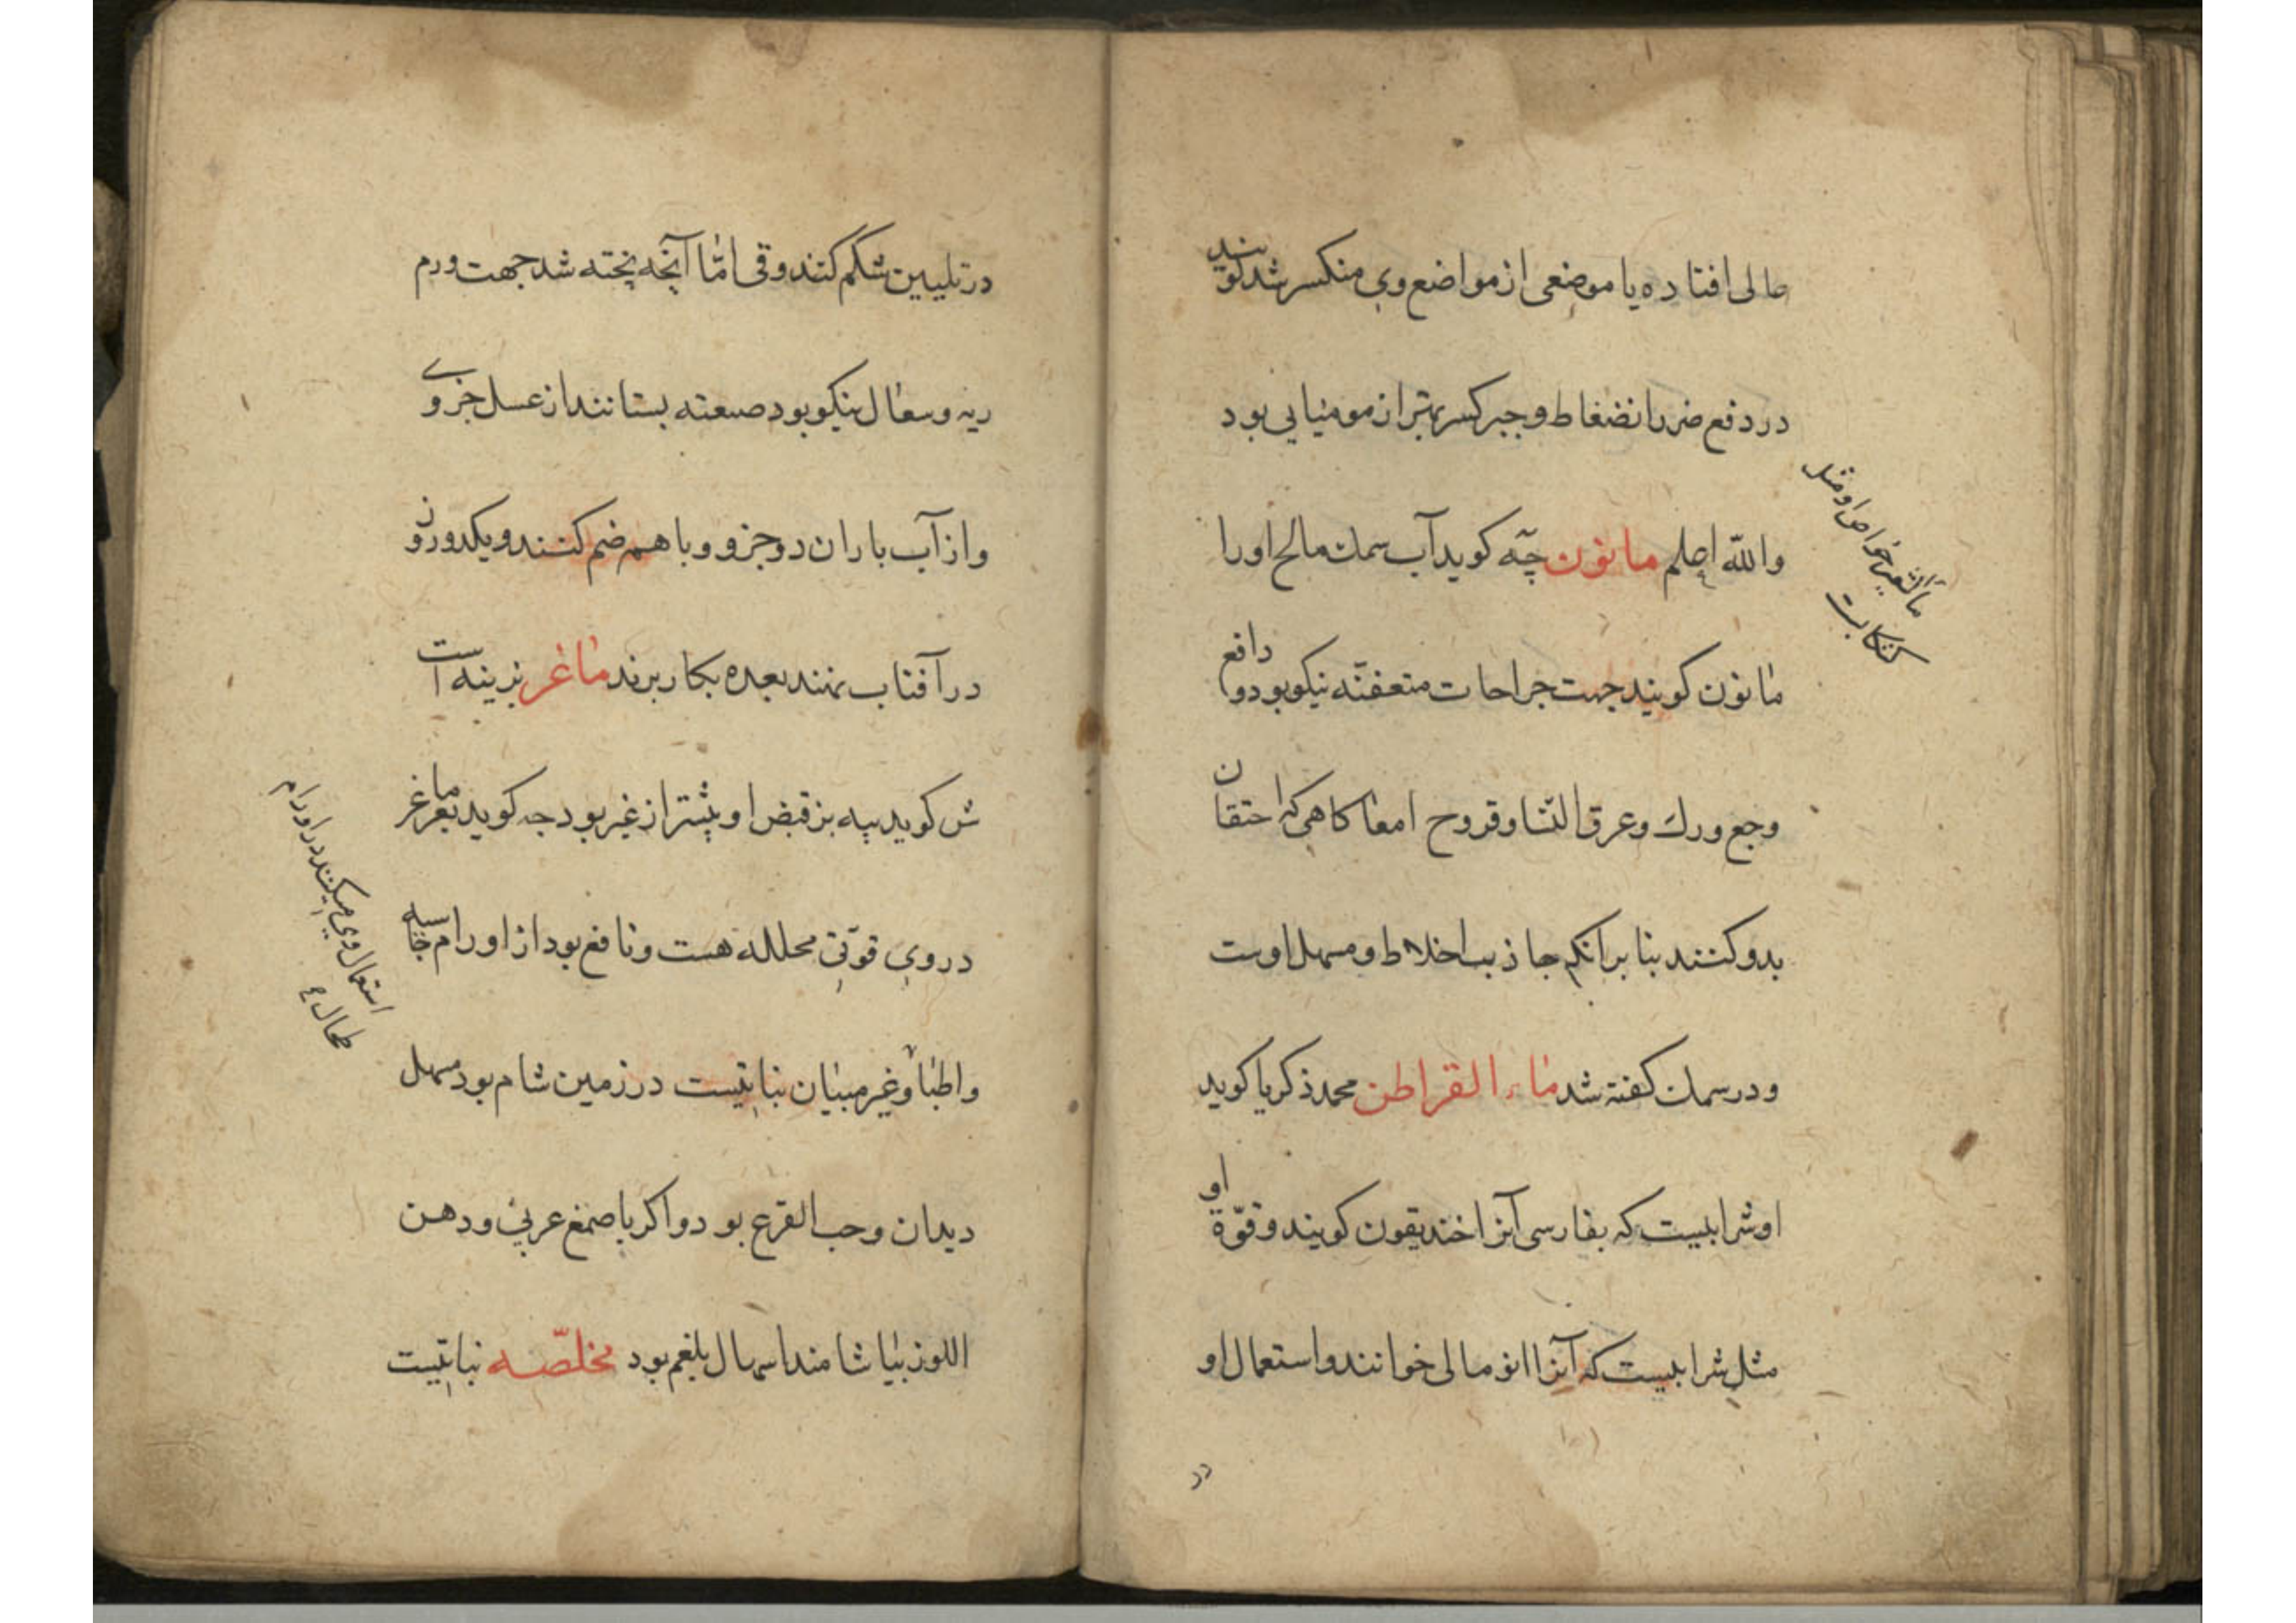 عالی افتاده یا موضعی از مواضع وی منکسر شد کویند
در دفع ضرر انضغاط و جبر کسر بهتر از مومیایی بود
والله اعلم مانون جه کوید آب سمك مالح اورا
مانون کویند جهت جراحات متعفنه نیکو بود و دافع
وجع ورك و عرق النسا و قروح امعا کاهی که احتقان
بدو کنند بنا بر انکه جاذب اخلاط و مسهل اوست
و در سمك کفته شد ماء القراطن محمد زکریا کوید
او شرابیست که بفارسی آنرا خندیقون کویند و قوّة او
مثل شرابیست که آنرا انومالی خوانند و استعمال او
دد
ماء الشعیر خواص او مثل
کشکابست
در تلیین شکم کنند و قی امّا آنچه پخته شد جهت ورم
ریه و سعال نیکو بود صنعته بستانند از عسل جزوی
و از آب باران دو جزو و با هم ضم کنند و یکدو روز
در آفتاب نهند بعده بکار برند ماغر بزینه است
ش کوید پیه بز قبض او بیشتر از غیر بود جه کوید بعر ماغر
در وی قوّتی محلله هست و نافع بود از اورام جاسیه
و اطبا و غیر مبیان نباتیست در زمین شام بود مسهل
دیدان و حب القرع بود و اکر با صمغ عربی و دهن
اللوز بیاشامند اسهال بلغم بود مخلّصه نباتیست
استعمال وی میکنند در اورام
طحال